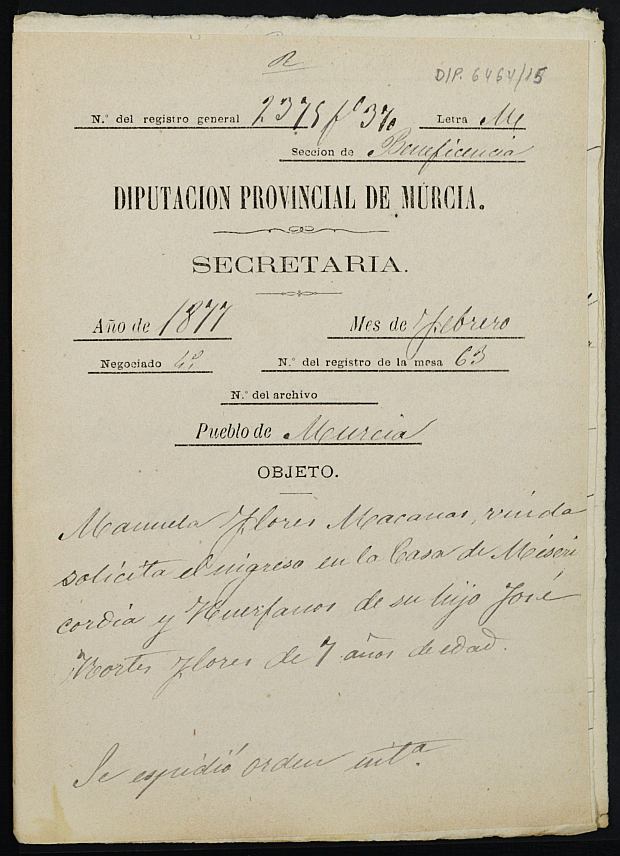 R
DIP. 6464/15
N.º del registro general 2375 fº 370 Letra M
Seccion de Beneficencia
DIPUTACION PROVINCIAL DE MURCIA.
SECRETARIA.
Año de 1877 Mes de Febrero
Negociado 4º N.º del registro de la mesa 63
N.º del archivo
Pueblo de Murcia
OBJETO.
Manuela Flores Macanas, viuda
solicita el ingreso en la Casa de Miseri
cordia y Huerfanos de su hijo José
Flores de 7 años de edad.
Se espidió orden